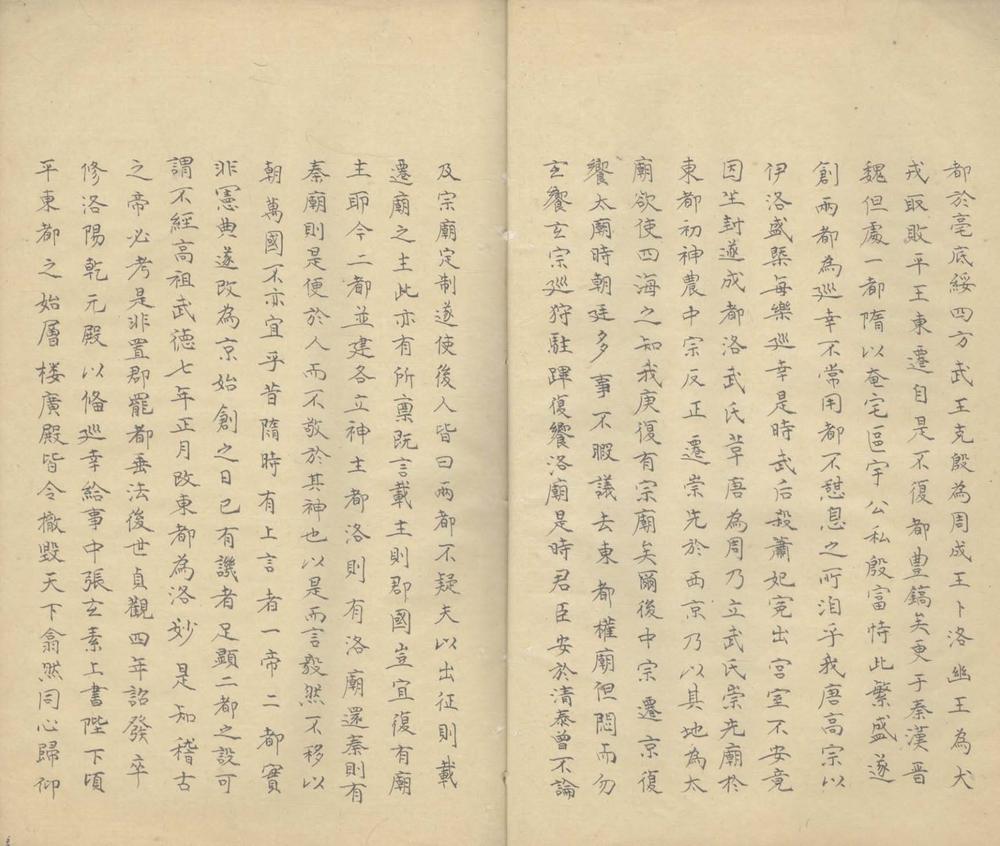 都於亳底綏四方武王克殷為周成王卜洛幽王為犬
戎取敗平王東遷自是不復都豊鎬矣更于秦漢晋
魏但處一都隋以奄宅區宇公私殷富恃此繁盛遂
創兩都為廵幸不常用都不憇息之所洎乎我唐高宗以
伊洛盛槩每樂廵幸是時武后殺蕭妃寃出宫室不安竟
因坐封遂成都洛武氏草唐為周乃立武氏崇先廟於
東都初神農中宗反正遷崇先於西京乃以其地為太
廟欲使四海之知我庚復有宗廟矣爾後中宗遷京復
饗太廟時朝廷多事不暇議去東都權廟但悶而勿
玄饗玄宗廵狩駐蹕復饗洛廟是時君臣安於清泰曾不論
及宗廟定制遂使後人皆曰兩都不疑夫以出征則載
遷廟之主此亦有所稟既言載主則郡國豈宜復有廟
主耶今二都並建各立神主都洛則有洛廟還秦則有
秦廟則是便於人而不敬於其神也以是而言毅然不移以
朝萬國不亦宜乎昔隋時有上言者一帝二都實
非憲典遂改為京始創之日已有譏者足顯二都之設可
謂不經高祖武德七年正月改東都為洛 是知稽古
之帝必考是非置郡罷都垂法後世貞觀四年詔發卒
修洛陽乾元殿以偹廵幸給事中張玄素上書陛下頃
平東都之始層樓廣殿皆令撤毀天下翕然同心歸仰